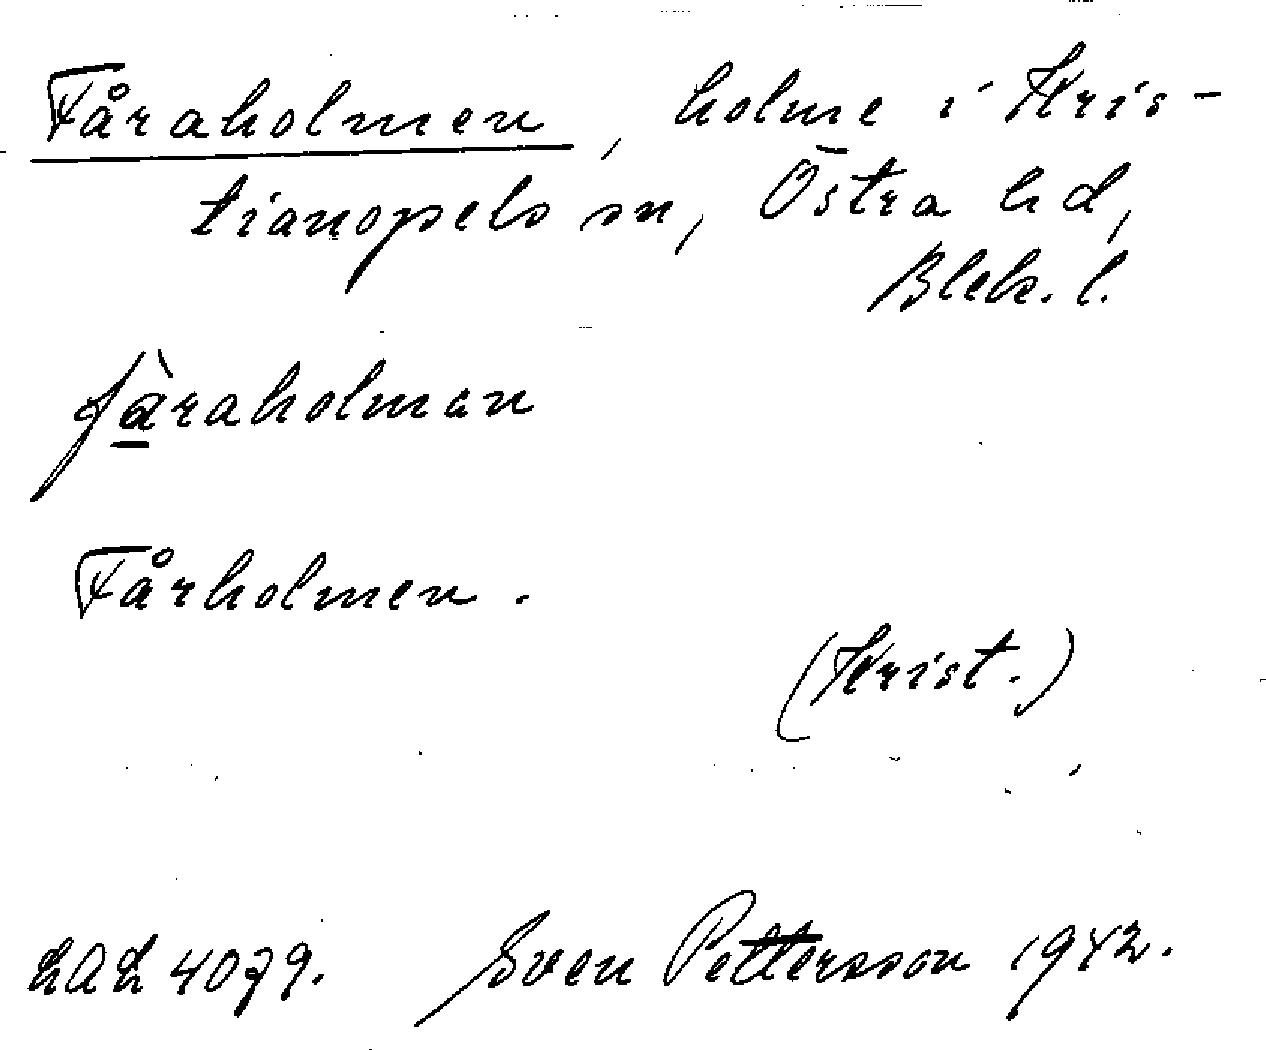 Fåraholmen, holme i Kris-
tianopels sn, Östra hd,
Blek. l.
fàraholman
Fårholmen.
(Krist.)
LAL 4079. Sven Pettersson 1942.